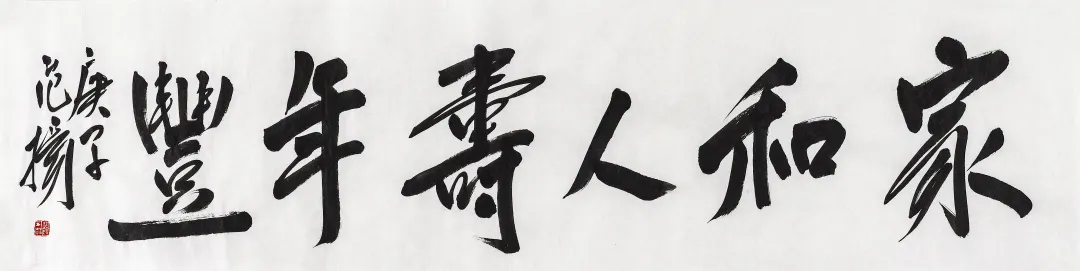 家和人壽年豐
庚子
范擴